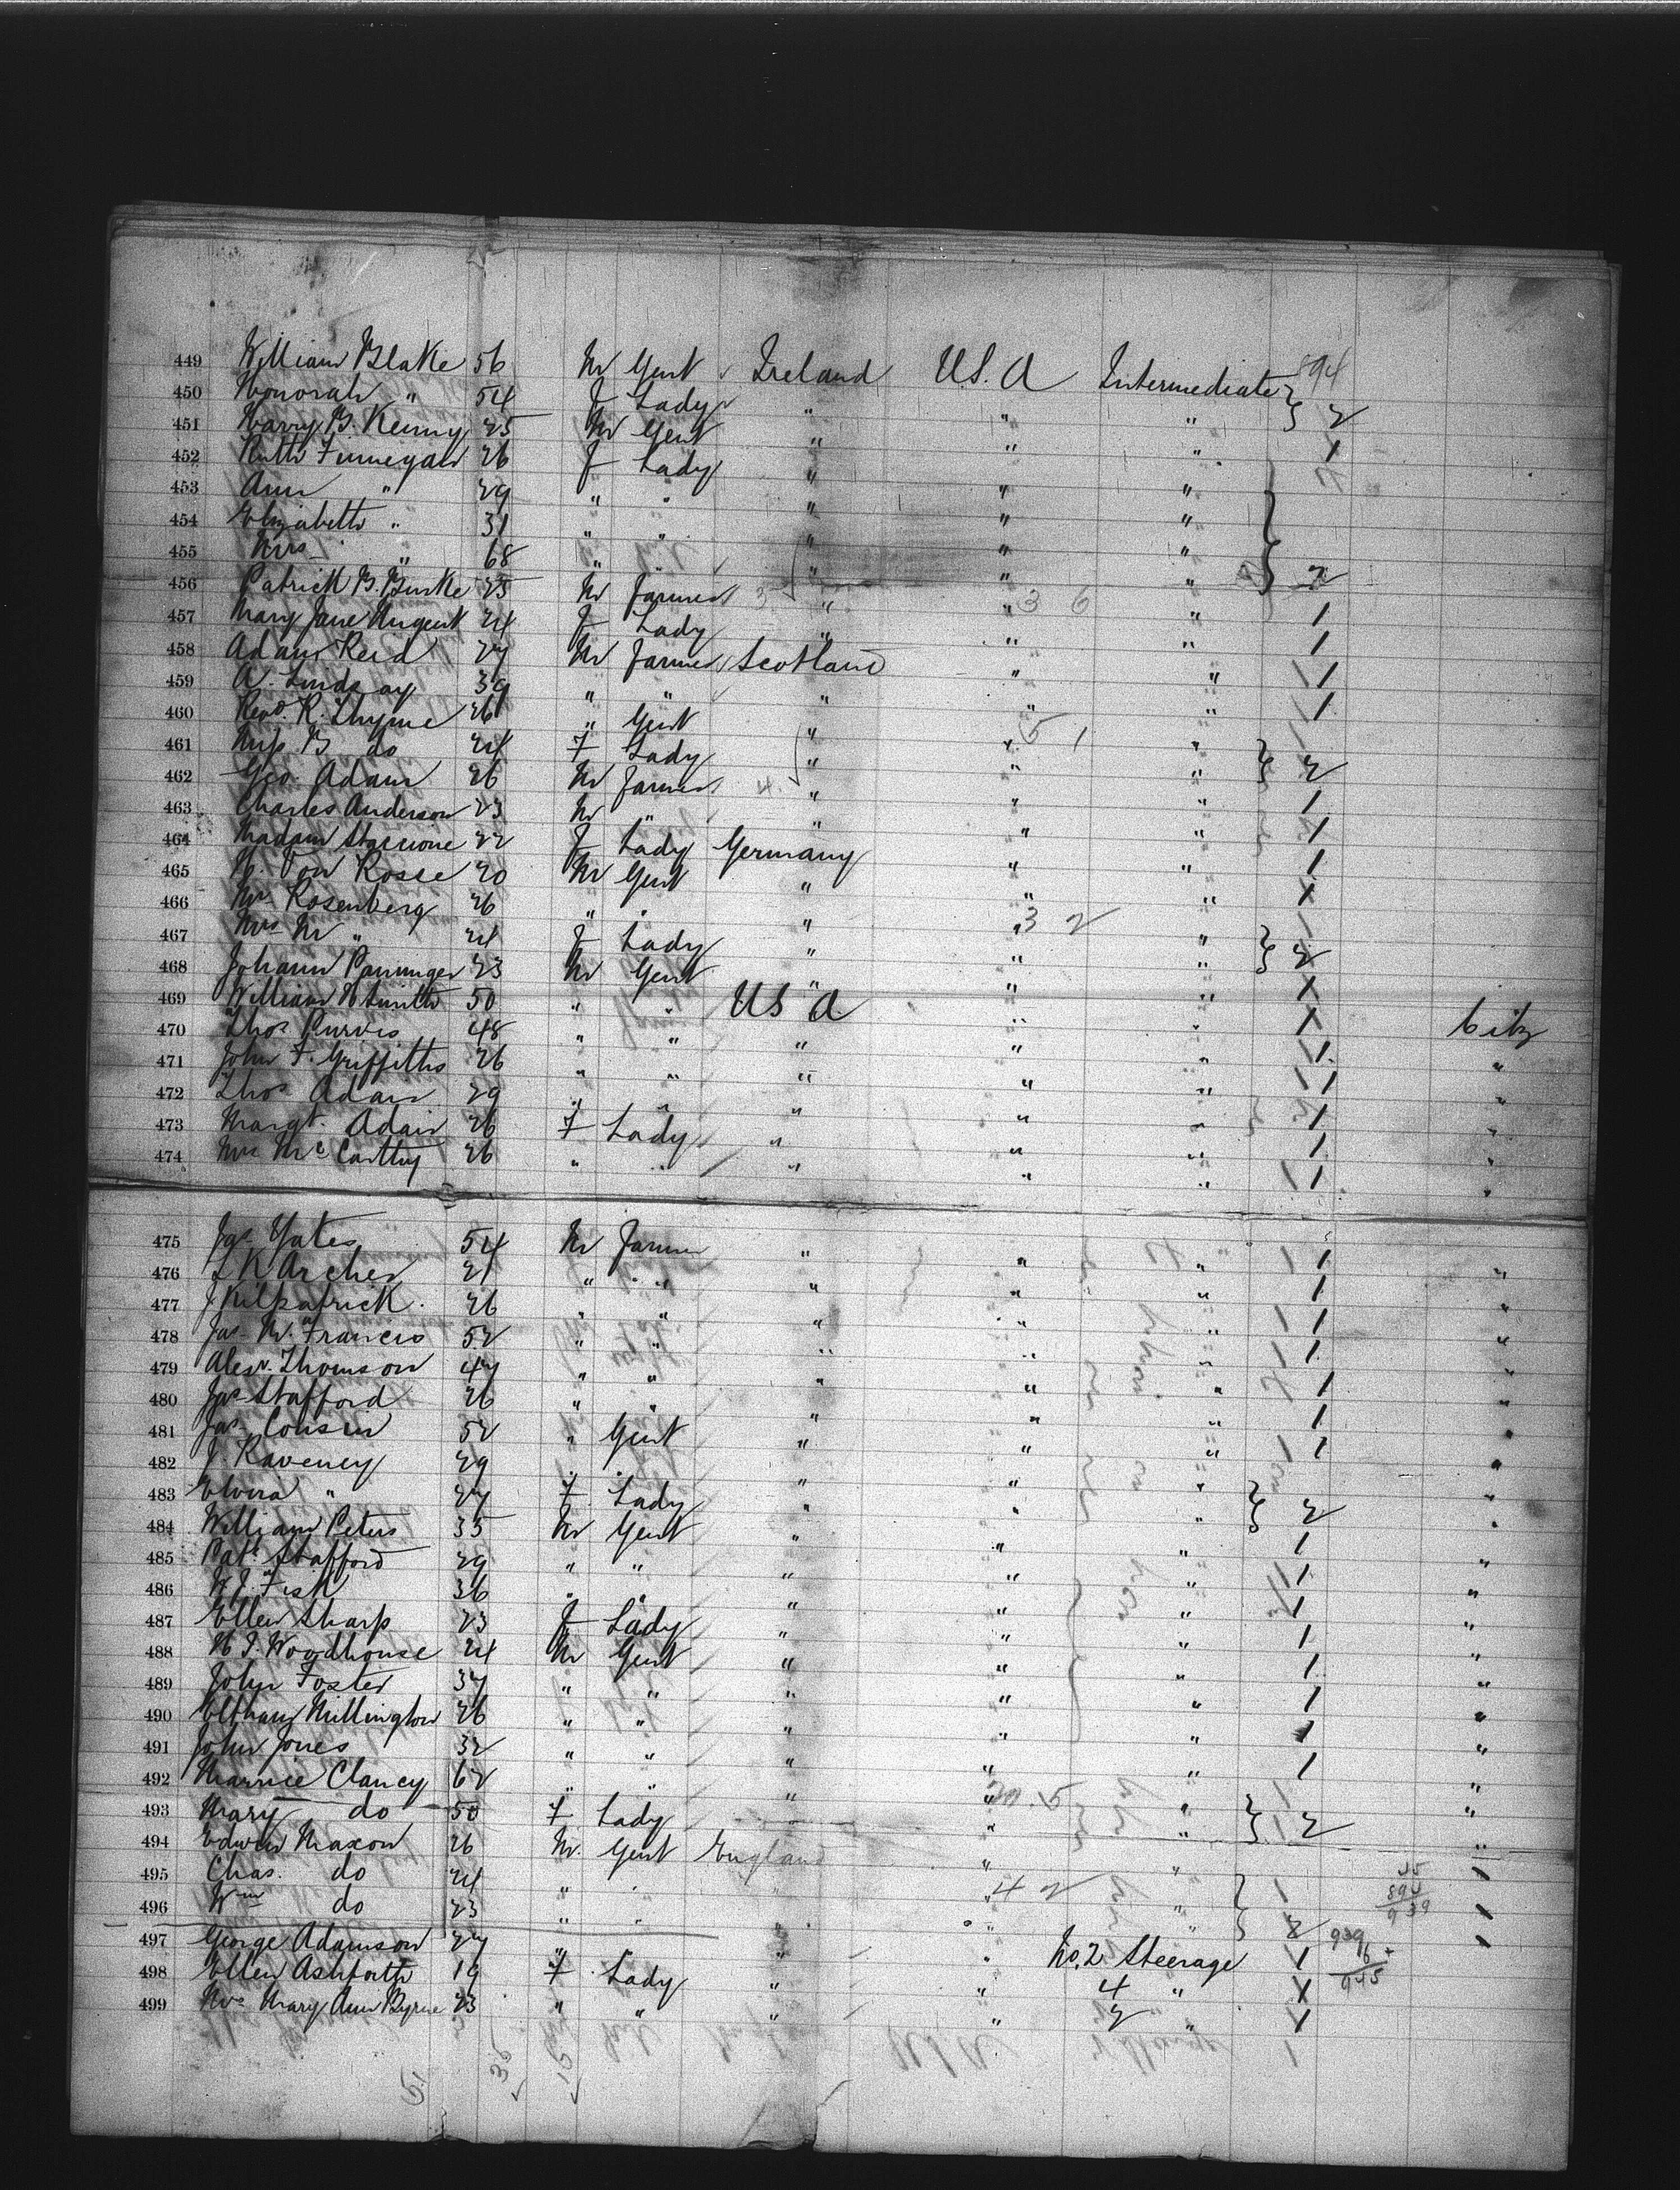 449 William Blake 56 M Gent Ireland U.S.A Intermediate 894
450 Honorah " 54 F Lady " " " 2
451 Harry B. Kenny 25 M Gent " " " 1
452 Ruth Finnegan 26 F Lady " " "
453 Ann " 29 " " " " "
454 Elizabeth " 31 " " " " "
455 Mrs " 68 " " " " "
456 Patrick B. Burke 25 M Farmer 3 " " 3 6 " 1
457 Mary Jane Nugent 24 F Lady " " " 1
458 Adam Reid 27 M Farmer Scotland " " 1
459 A. Lindsay 39 " " " " " 1
460 Revd. R. Thyme 26 " Gent " " 5 1 "
461 Miss B do 24 F Lady " " " 2
462 Geo. Adam 26 M Farmer 4 " " " 1
463 Charles Anderson 23 M " " " " 1
464 Madam 22 F Lady Germany " " 1
465 H. Von Rosse 20 M Gent " " " 1
466 Mr Rosenberg 26 " " " " 3 2 "
467 Mrs M " 24 F Lady " " " 2
468 Johann 23 M Gent " " " 1
469 William H Smith 50 " " U S A " " 1 Citz
470 Thos Purvis 48 " " " " " 1 "
471 John F. Griffiths 26 " " " " " 1 "
472 Thos Adair 29 " " " " " 1 "
473 Margt. Adair 26 F Lady " " " 1 "
474 Mrs McCarthy 26 " " " " " 1 "
475 Jas Yates 54 M Farmer " " " 1 "
476 L K Archer 21 " " " " " 1 "
477 J Kilpatrick 26 " " " " " 1 "
478 Jas M. Francis 52 " " " " " 1 "
479 Alexr. Thomson 47 " " " " " 1 "
480 Jas Stafford 26 " " " " " 1 "
481 Jas Cousin 52 " Gent " " " 1 "
482 J. Raveney 29 " " " " " "
483 Elvira " 27 F Lady " " " 2 "
484 William Peters 35 M Gent " " " 1 "
485 Patk Stafford 29 " " " " " 1 "
486 Fish 36 " " " " " 1 "
487 Ellen Sharp 23 F Lady " " " 1 "
488 H J. Woodhouse 24 M Gent " " " 1 "
489 John Foster 37 " " " " " 1 "
490 Millington 26 " " " " " 1 "
491 John Jones 32 " " " " " 1 "
492 Clancy 62 " " " " "
493 Mary do 50 F Lady " " 2 "
494 Edwin Maxon 26 M. Gent England " "
495 Chas. do 24 " " " " 4 2 "
496 Wm do 23 " " " "
497 George Adamson 27 " " " " No. 2 Steerage 1
498 Ellen Ashforth 19 F Lady " " 4 " 1
499 Mrs Mary Ann Byrne 23 " " " " 2 " 1